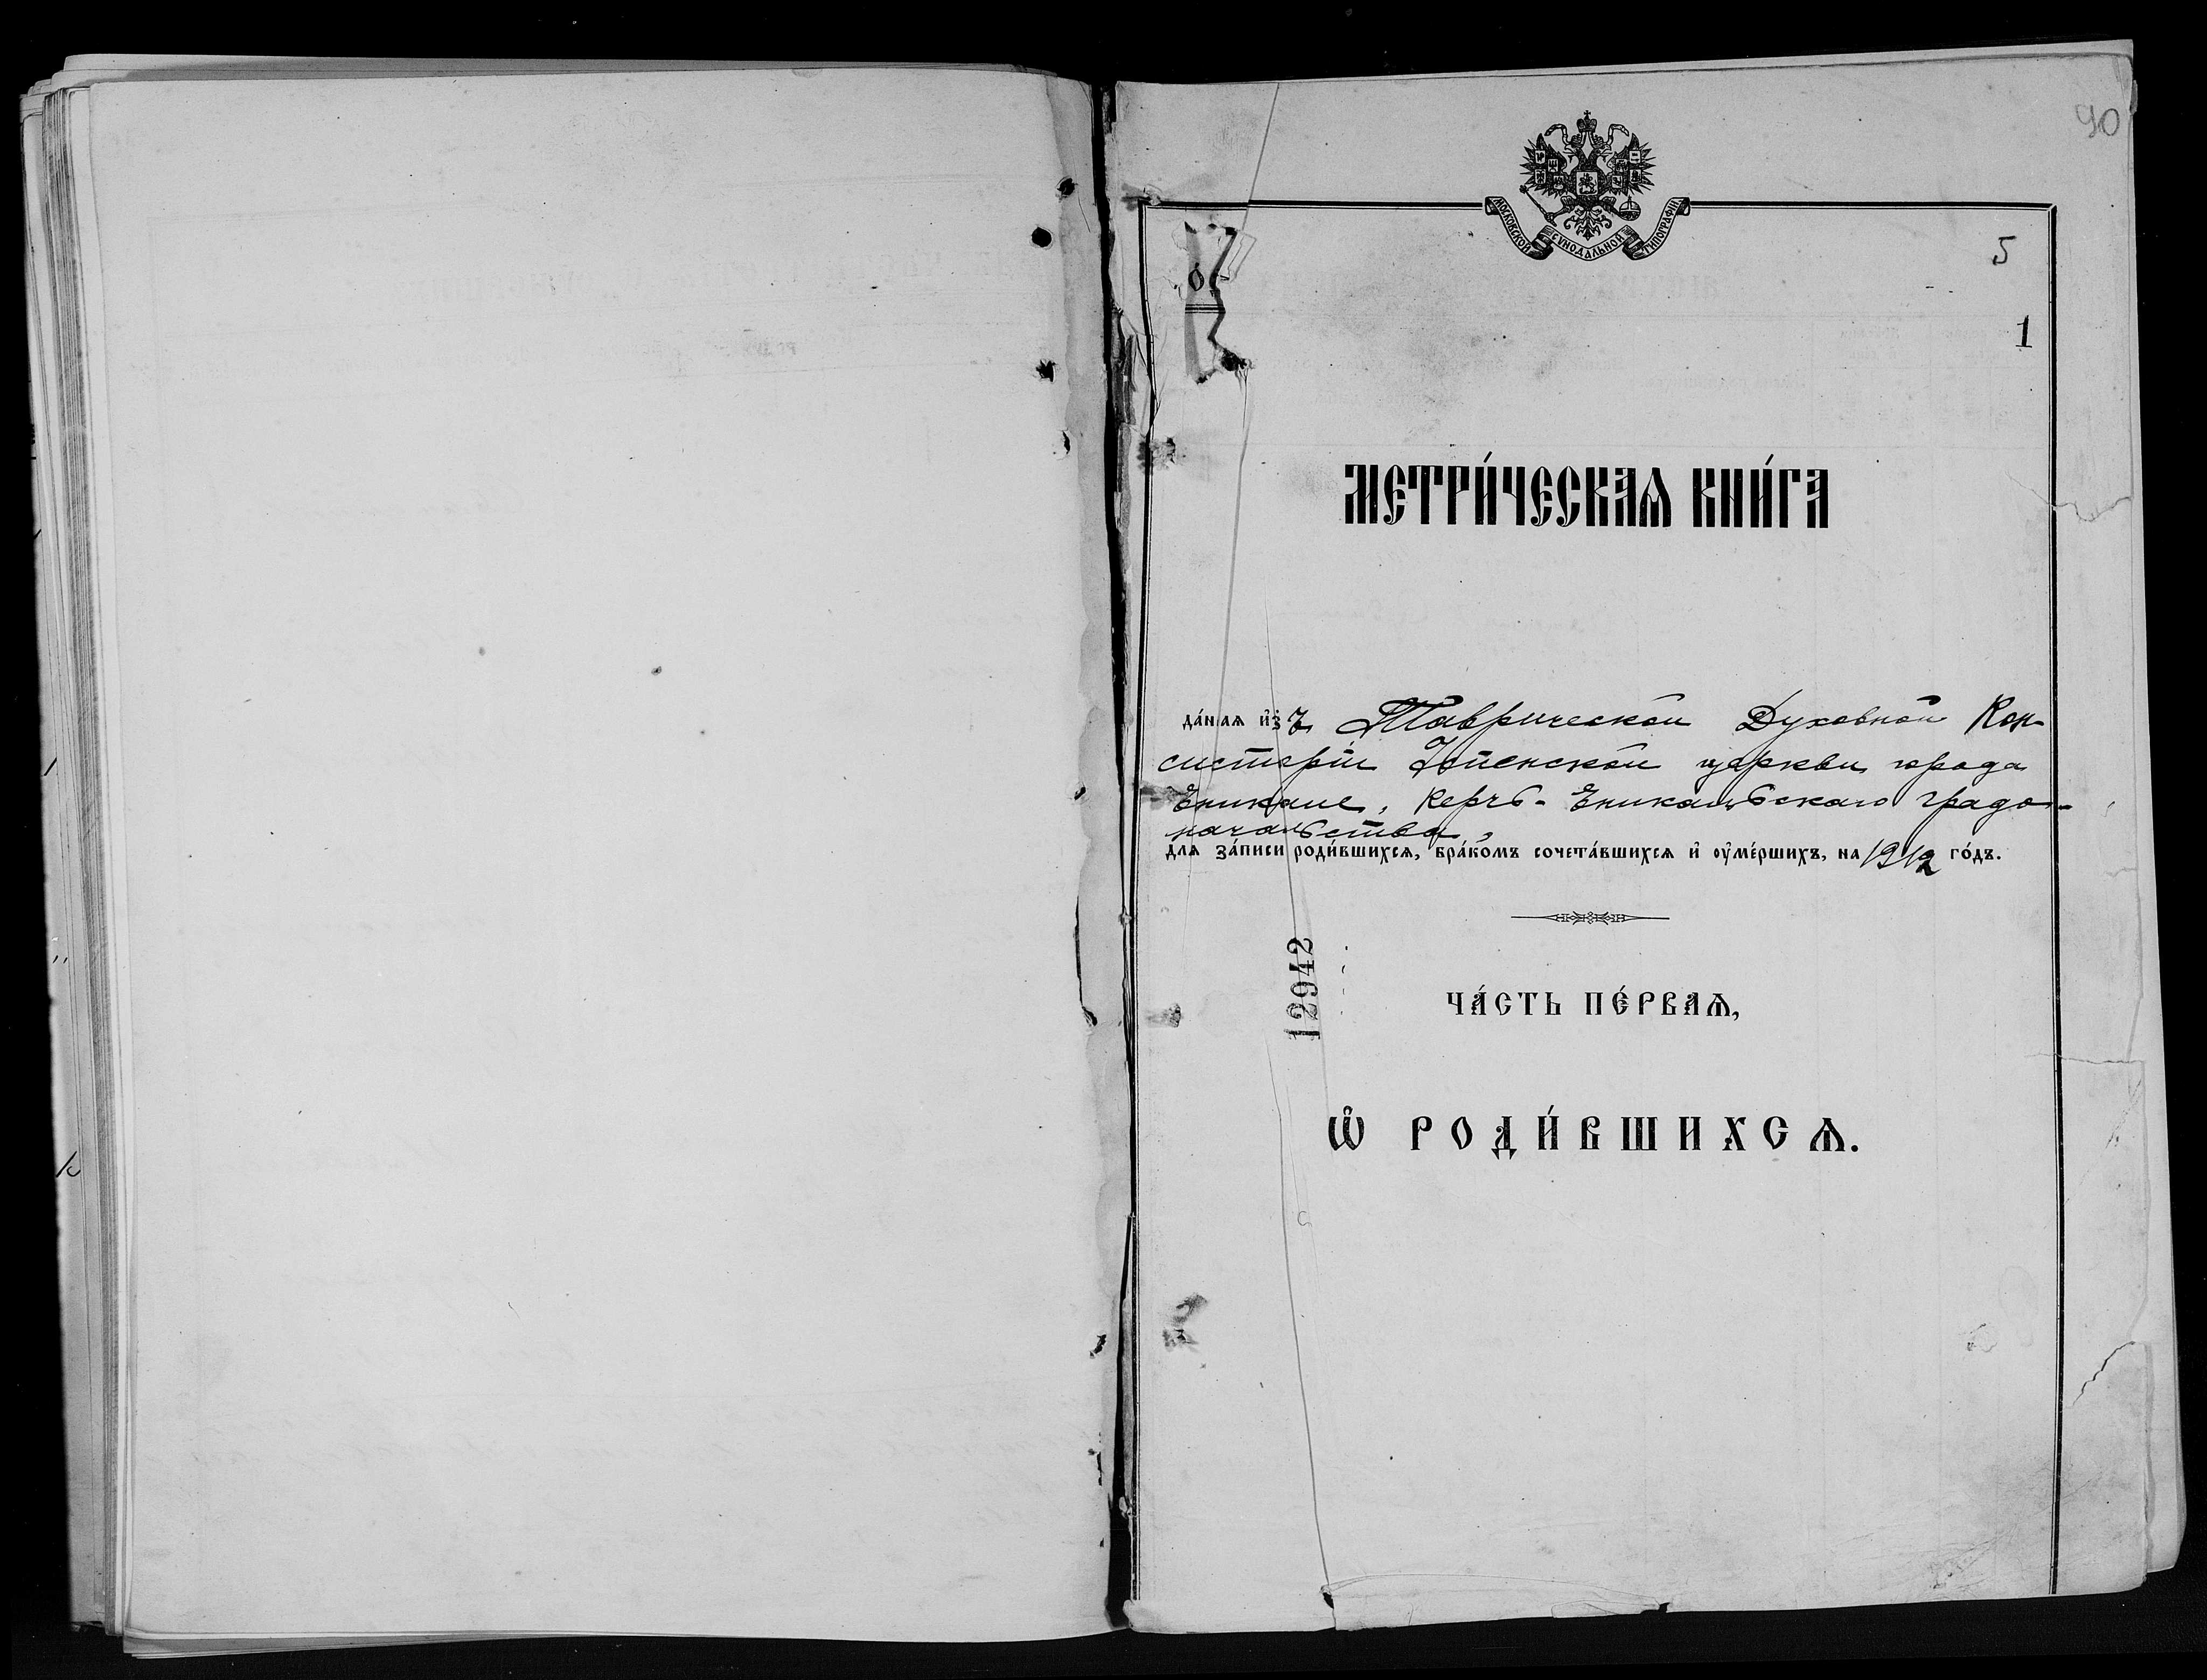 90
МОСКОВСКОЙ СѴНОДАЛЬНОЙ ТИПОГРАФІИ
5
1
МЕТРИ́ЧЕСКАѦ КНИ́ГА
да́ннаѧ и҆зъ Таврической Духовной Кон-
систеріи Успенской церкви города
Еникале, Керчь-Еникальскаго градо-
начальства,
для за́писи роди́вшихсѧ, бра́комъ сочета́вшихсѧ и҆ оу҆ме́ршихъ, на 1912 го́дъ.
12942
ЧА́СТЬ ПЕ́РВАѦ,
Ѽ РОДИ́ВШИХСѦ.